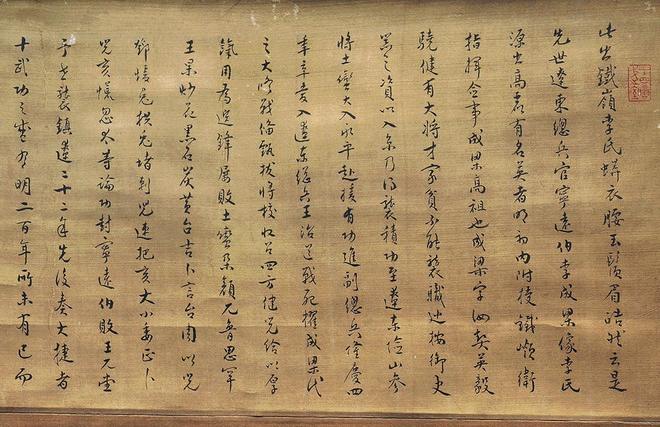 此出鐵嶺李氏蟒衣腰玉鬚眉皓然云是
先世遼東總兵官寧遠伯李成梁像李氏
源出高麗有名英者明初內附後鐵嶺衛
指揮僉事成梁高祖也成梁字汝契英毅
驍健有大將才家貧不能襲職巡按御史
器之資以入京乃得襲積功至遼東險山參
將土蠻大入永平赴援有功進副總兵隆慶四
年辛愛入遼東總兵王治道戰死擢成梁代
之大修戰備甄拔將校收召四方健兒給以厚
餼用為選鋒屢敗土蠻朶顏兀魯思罕
王杲炒花黑石炭黃台吉卜言台周以兒
鄧煖兔拱兔堵剌兒速把亥大小委正卜
兒亥慌忽太等論功封寧遠伯敗王兀堂
予世襲鎮遼二十二年先後奏大捷者
十武功之盛有明二百年所未有已而